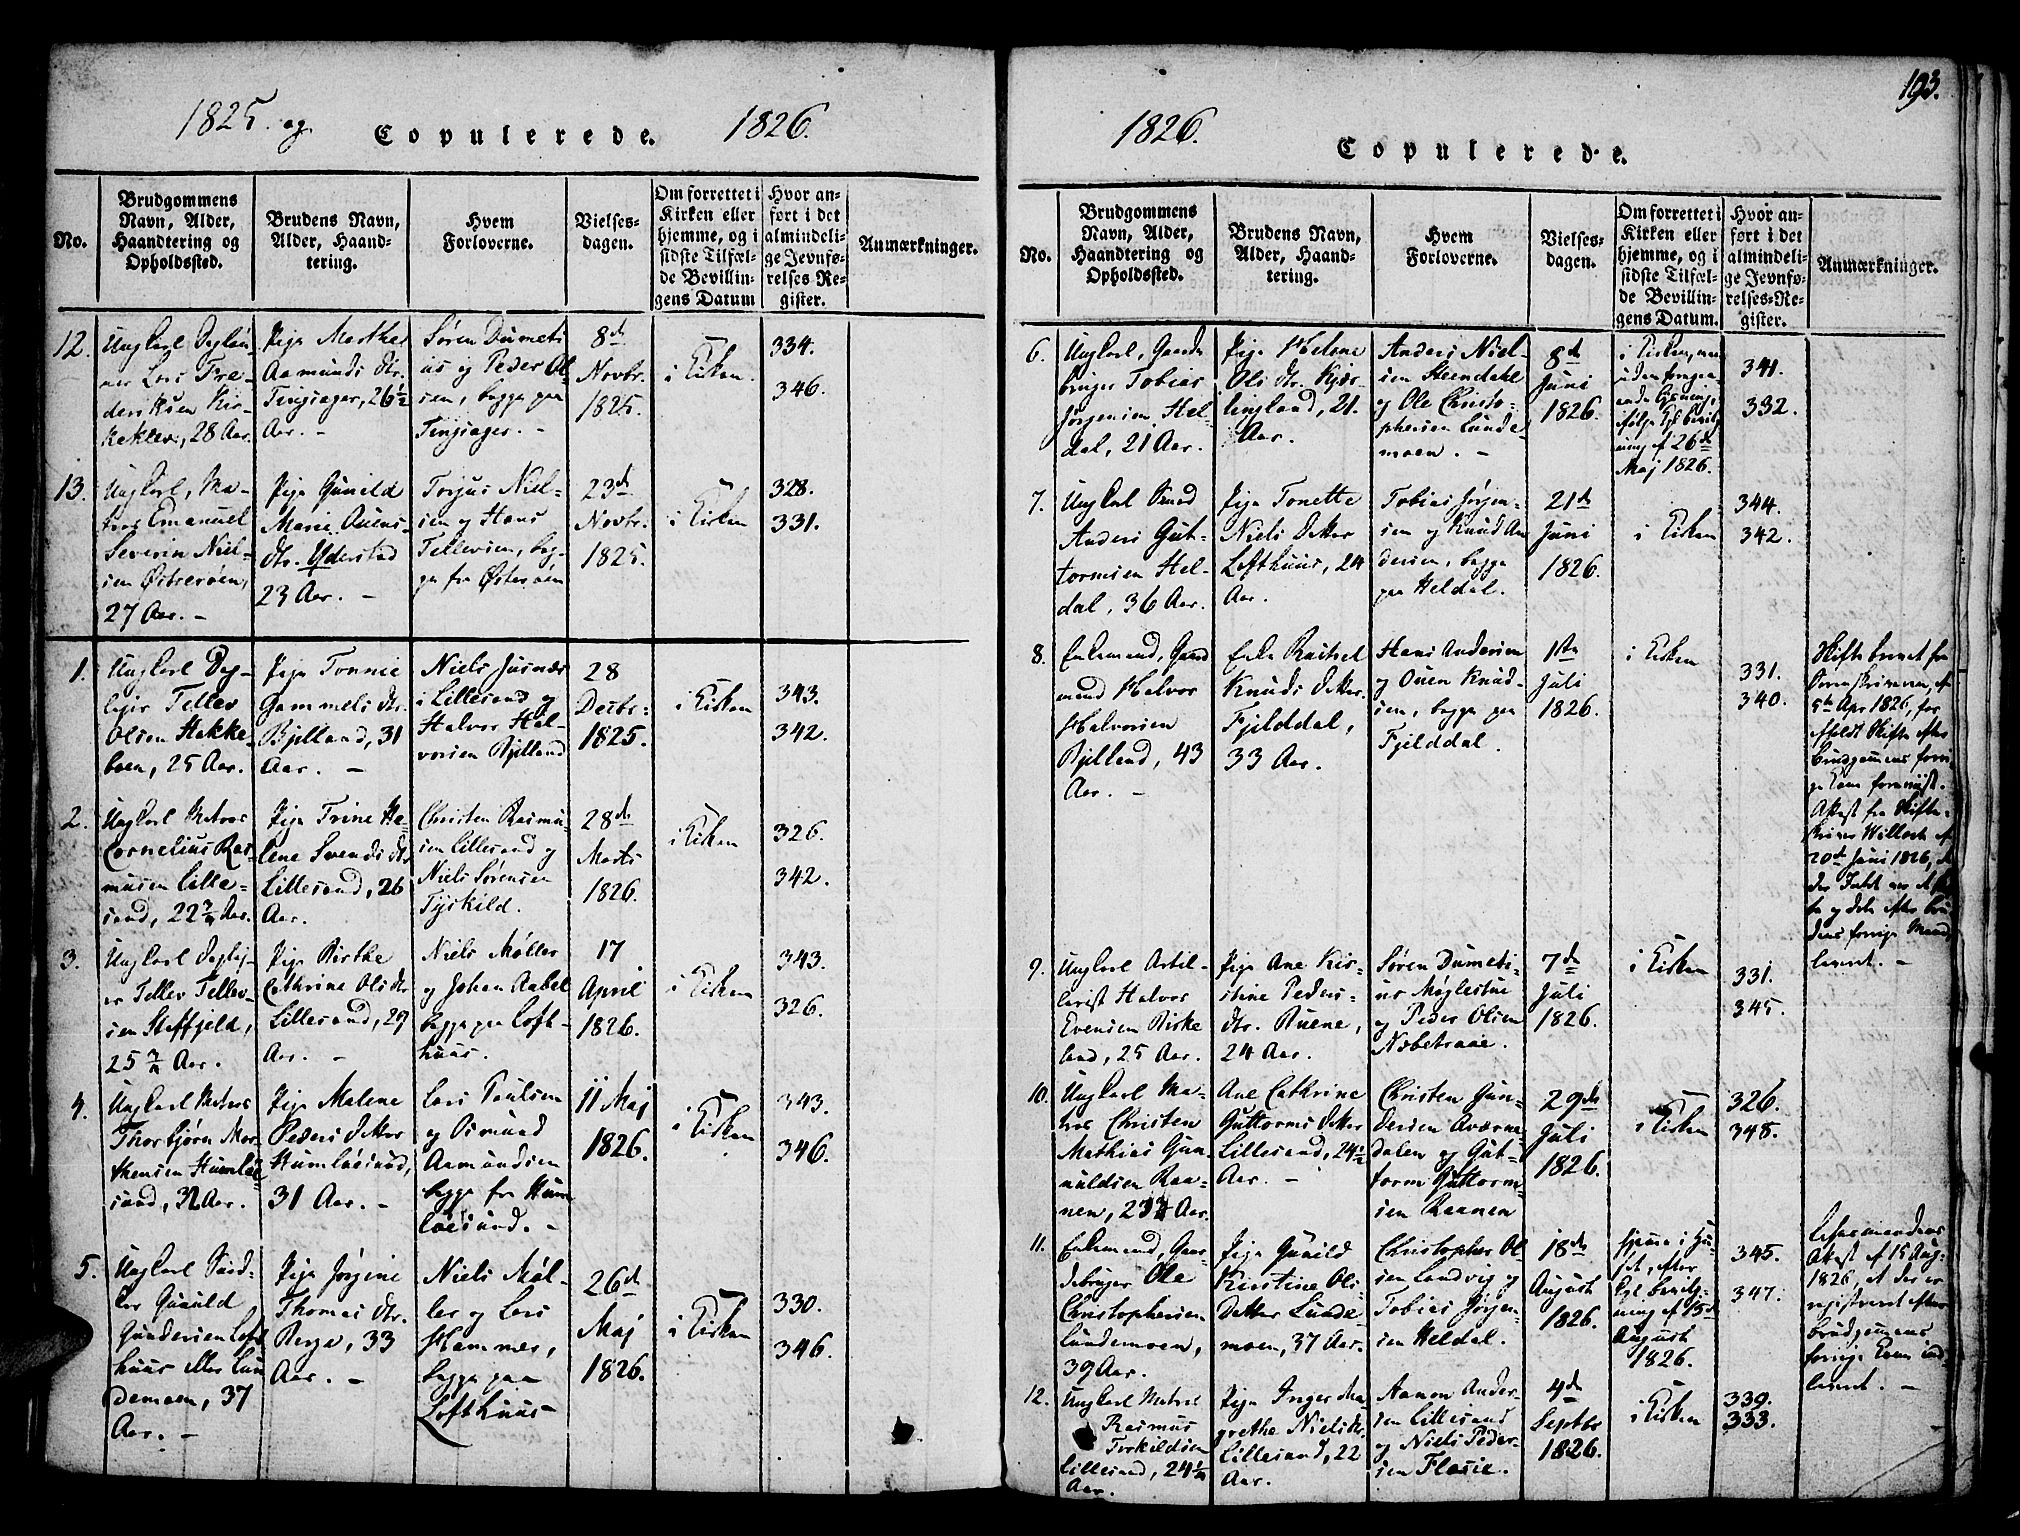 1825 og 1826.
Copulerede.
No.
Brudgommens
Navn, Alder,
Haandtering og
Opholdssted.
Brudens Navn,
Alder, Haand-
tering.
Hvem
Forloverne.
Vielses-
dagen.
Om forrettet i
Kirken eller
hjemme, og i
sidste Tilfæl-
de Bevillin-
gens Datum
Hvor an-
ført i det
almindeli-
ge Jevnfø-
relses Re-
gister.
Anmærkninger.
12.
Ungkarl
Lars Fre-
deriksen Kir-
keklev, 28 Aar.
Pige Marthe
Aamunds dtr.
Tingsager, 26½
Aar. -
Søren Dumeti
us og Peder Ol-
sen, begge paa
Tingsager. -
8de
Novbr.
1825.
i Kirken.
334.
346.
13.
Ungkarl, Ma-
tros Emanuel
Severin Niel-
sen Østerøen,
27 Aar. -
Pige Gunild
Marie Ouens-
dtr. Yderstad
23 Aar. -
Torjus Niel-
sen og Hans
Tellevsen, beg-
ge fra Østerøen
23de
Novbr.
1825.
i Kirken
328.
331.
1.
Ungkarl
Tellev
Olsen Hække-
boen, 25 Aar.
Pige Tonnie
Gammels dtr.
Bjelland, 31
Aar. -
Niels
i Lillesand og
Halvor Hal-
vorsen Bjelland
28
Decbr.
1825.
i Kirken
343.
342.
2.
Ungkarl Matros
Cornelius Ras-
musen Lille-
sand, 22¾ Aar.
Pige Trine He-
lene Svends dtr
Lillesand, 26
Aar. -
Christen Rasmu-
sen Lillesand og
Niels Sørensen
Tyskild.
28de
Marts
1826.
i Kirken
326.
342.
3.
Ungkarl
Tellev Tellev-
sen Steffjeld,
25 Aar.
Pige Birthe
Cathrine Ols dtr
Lillesand, 29
Aar. -
Niels Møller
og Johan Aabel
begge paa Loft-
huus.
17
April
1826.
i Kirken
343.
326.
4.
Ungkarl Matros
Thorbjørn Mor-
thensen Humløe-
sund, 32 Aar.
Pige Malene
Peders datter
Humløesund,
31 Aar. -
Lars Paulsen
og Osmund
Aamundsen
begge fra Hum
løesund. -
11 Maj
1826.
i Kirken
343.
346.
5.
Ungkarl
Gunuld
Gundersen Loft
huus eller Lun
demoen, 37
Aar. -
Pige Jørgine
Thomas dtr.
Berge, 33
Aar. -
Niels Møl-
ler og Lars
Hammer,
begge paa
Lofthuus-
26de
Maj
1826.
i Kirken
330.
346.
193.
1826.
Copulerede.
No.
Brudgommens
Navn, Alder,
Haandtering og
Opholdssted.
Brudens Navn,
Alder, Haand-
tering.
Hvem
Forloverne.
Vielses-
dagen.
Om forrettet i
Kirken eller
hjemme, og i
sidste Tilfæl-
de Bevillin-
gens Datum.
Hvor an-
ført i det
almindeli-
ge Jevnfø-
relses-Re-
gister.
Anmærkninger.
6.
Ungkarl, Gaard
bruger Tobias
Jørgensen Hel-
dal, 21 Aar.
Pige Helene
Ols dtr. Kjøs-
lingland, 21.
Aar.
Anders Niel-
sen Steendahl
og Ole Christo-
phersen Lunde-
moen. -
8de
Juni
1826.
i Kirken, men
uden foregaa-
ende Lysning,
ifølge Kgl. bevilg-
ning af 26de
Maj 1826.
341.
332.
7.
Ungkarl
Anders Gut-
tormsen Hel-
dal, 36 Aar.
Pige Tonette
Niels datter
Lofthuus, 24
Aar.
Tobias Jørgen-
sen og Knud An
dersen, begge
paa Heldal.
21de
Juni
1826.
i Kirken
344.
342.
8.
Enkemand, Gaard
mand Halvor
Halvorsen
Bjelland, 43
Aar. -
Enke Rachel
Knuds datter
Fjelddal,
33 Aar.
Hans Andersen
og Ouen Knud-
sen, begge paa
Fjelddal.
1ste
Juli
1826.
i Kirken
331.
340.
Skifte brevet fra
Sorenskriveren, af
5te Apr 1826, for
afholdt Skifte efter
brudgommens forri-
ge Kone foreviist.
Attest fra Skifte-
20de Juni 1826,
og dets efter bru-
dens forrige Mand
leveret. -
9.
Ungkarl Artil-
lerist Halvor
Evensen Birke
land, 25 Aar.
Pige Ane Kir-
stine Peders-
dtr. Buene,
24 Aar.
Søren Dumeti-
us Møglestue
og Peder Olsen
Næbetraae.
7de
Juli
1826.
i Kirken
331.
345.
10.
Ungkarl Ma-
tros Christen
Mathias Gun-
nuldsen Raa-
nen, 23¾ Aar.
Ane Cathrine
Guttorms datter
Lillesand, 24½
Aar. -
Christen Gun-
dersen Aværne-
dalen og Gut-
torm Guttorm-
sen Raanen
29de
Juli
1826.
i Kirken
326.
348.
11.
Enkemand, Gaar-
debruger Ole
Christophersen
Lundemoen,
39 Aar.
Pige Gunild
Kirstine Ols
Datter Lunde
moen, 37 Aar.
Christopher Ol
sen Landvig og
Tobias Jørgen-
sen Heldal.
18de
August
1826.
hjemme i Hu-
set, efter
Kgl. bevilg-
ning af 15de
August
1826.
345.
347.
Lehnsmandens
Attest af 15 Aug.
1826, at der er
registreret efter
brudgommens
forrige Kone ind
leveret. -
12.
Ungkarl Matros
Rasmus
Torkildsen
Lillesand, 24¼
Aar.
Pige Inger Ma
grethe Niels dtr.
Lillesand, 22
Aar.
Aanon Ander-
sen Lillesand
og Niels Peder-
sen Flasie.
4de
Septbr
1826.
i Kirken
339.
333.